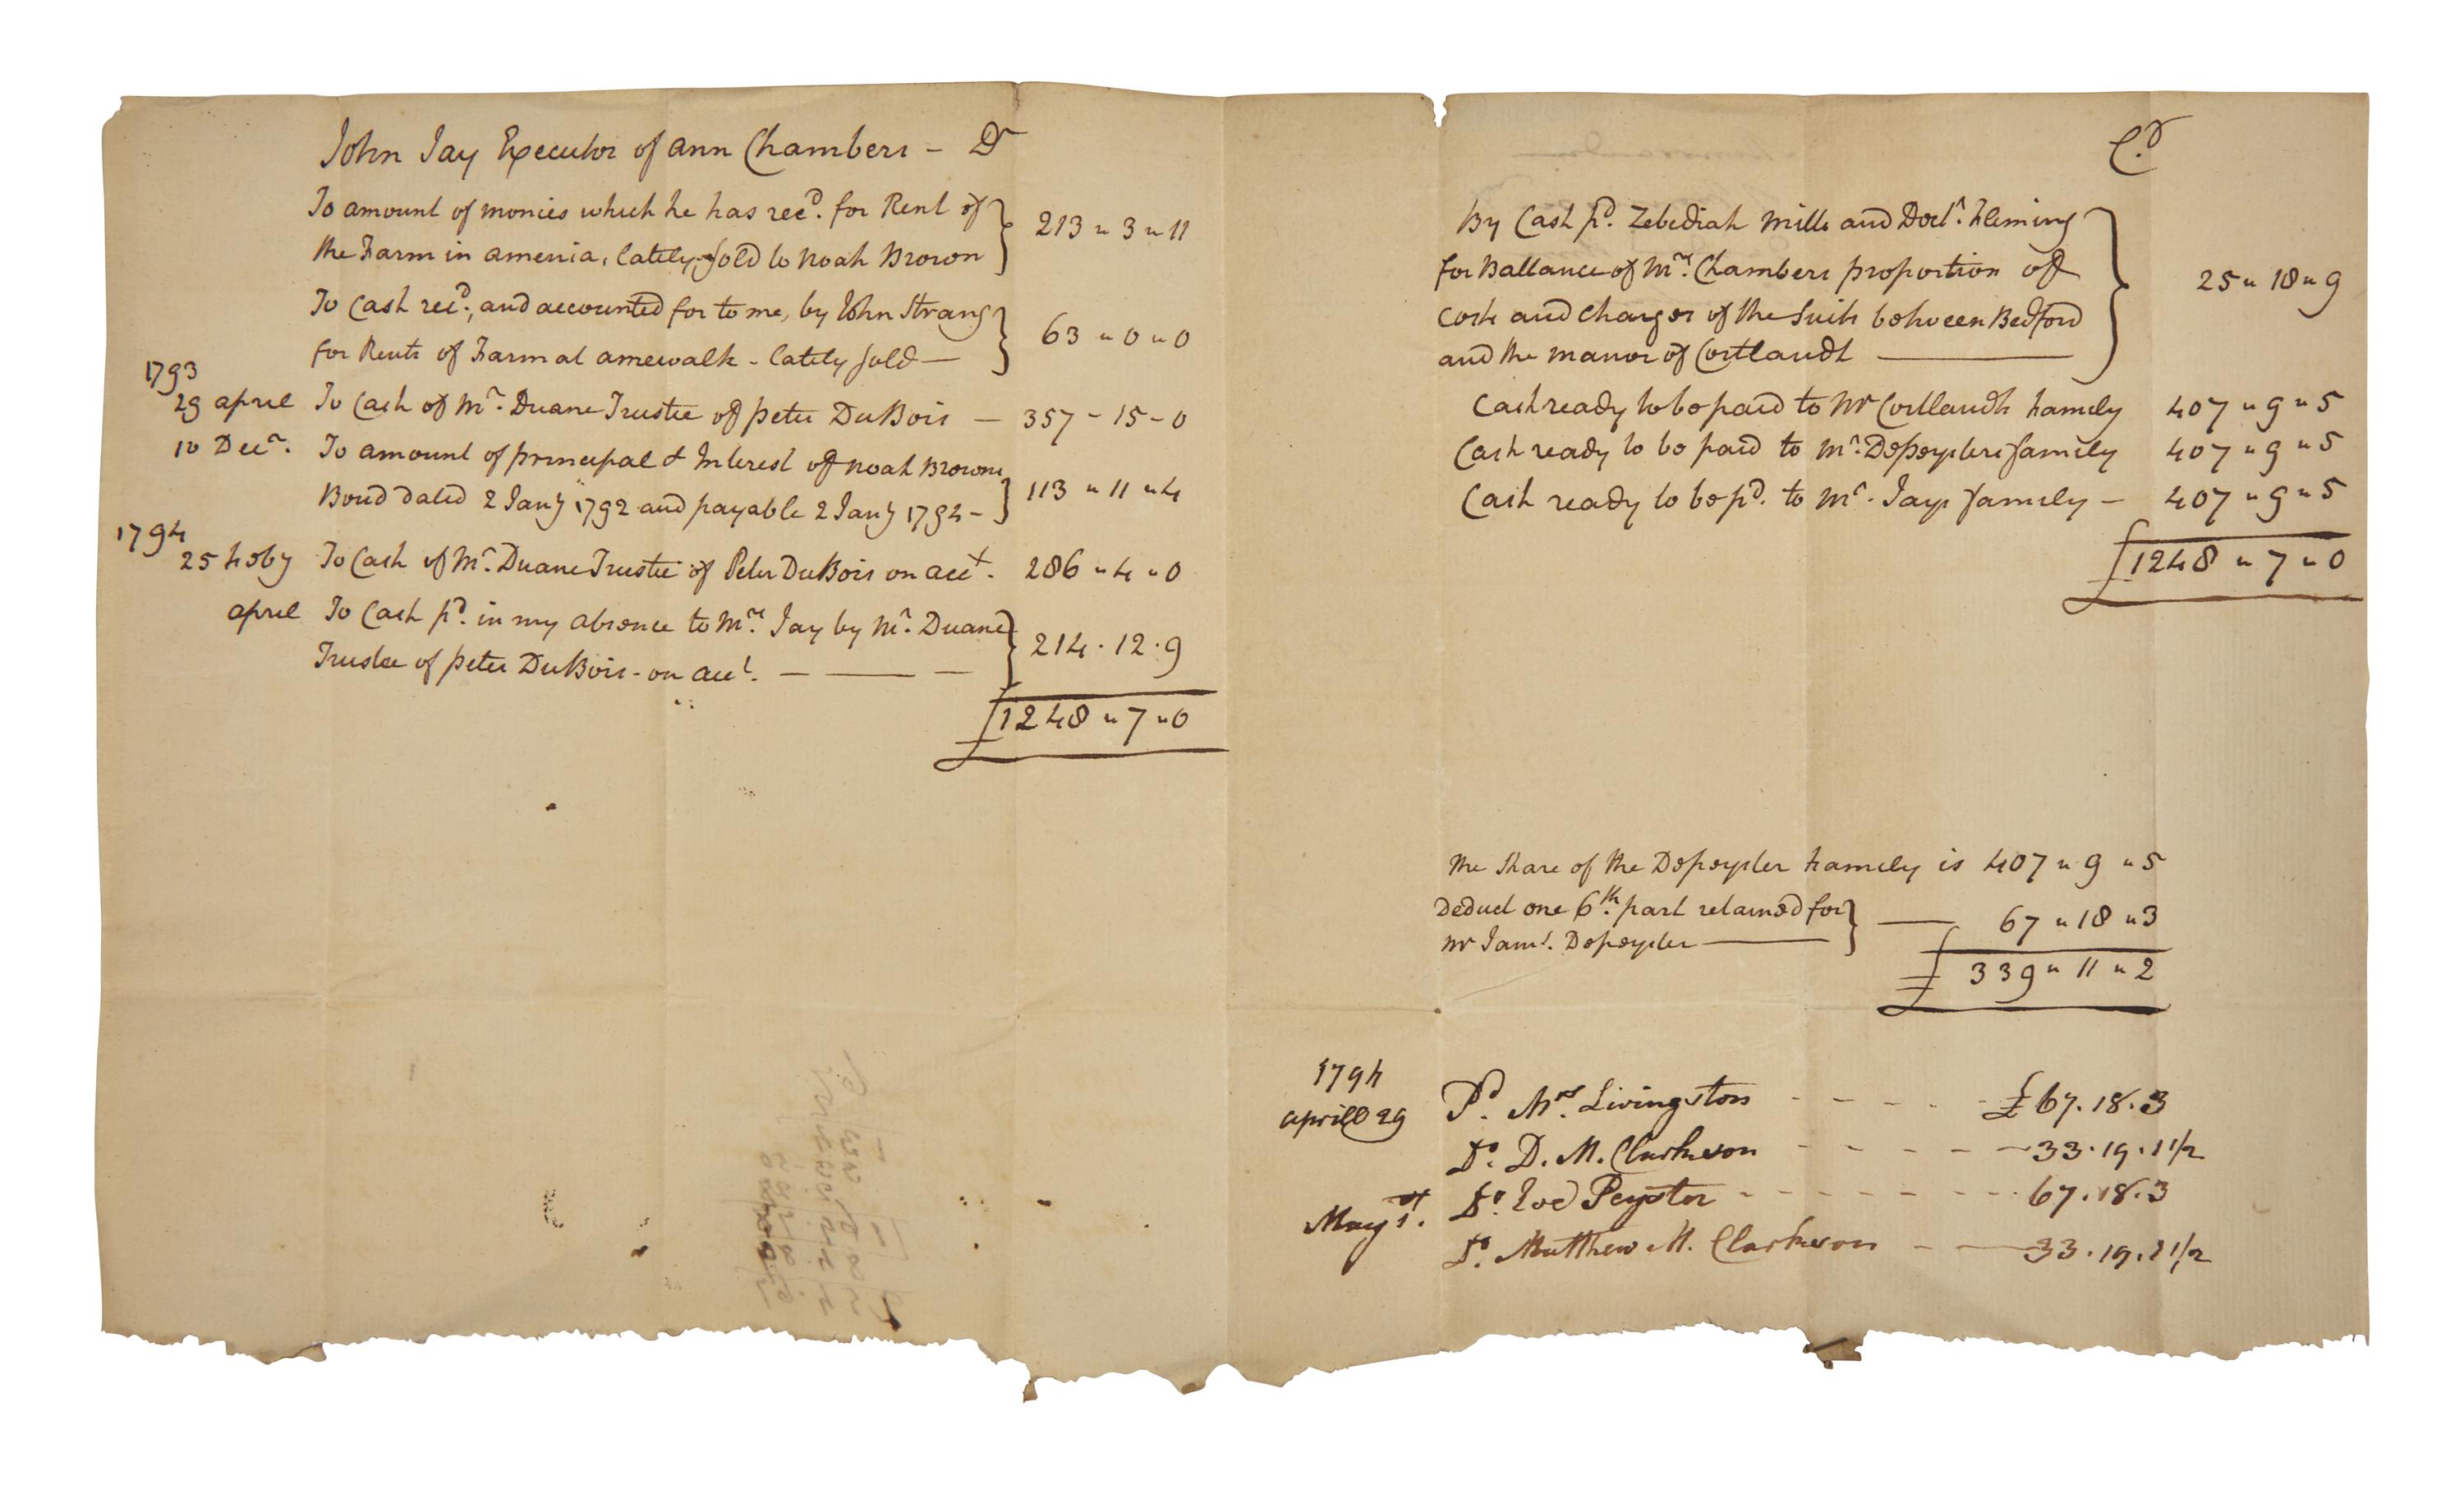 John Jay Executor of Ann Chambers - Dr
To amount of monies which he has recd. for Rent of
the Farm in Amenia, lately sold to Noah Brown } 213 " 3 " 11
To Cash recd., and accounted for to me, by John Strang
for Rents of Farm at Amewalk - lately sold — } 63 " 0 " 0
1793
29 April To Cash of Mr. Duane Trustee of Peter DuBois — 357 - 15 - 0
10 Decr. To amount of principal & Interest of Noah Browns
Bond dated 2 Jany 1792 and payable 2 Jany 1794 - } 113 " 11 " 4
1794
25 Feby To Cash of Mr. Duane Trustee of Peter DuBois on acct. 286 " 4 " 0
April To Cash pd. in my absence to Mrs. Jay by Mr. Duane
Trustee of Peter DuBois - on acct. — — — } 214 . 12 . 9
£1248 " 7 " 0
Cr
By Cash pd. Zebediah Mills and Doctr. Fleming
for Ballance of Mrs. Chambers proportion of
Costs and Charges of the Suits between Bedford
and the Manor of Cortlandt — } 25 " 18 " 9
Cash ready to be paid to Mr Cortlandts Family 407 " 9 " 5
Cash ready to be paid to Mr. DePeysters Family 407 " 9 " 5
Cash ready to be pd. to Mr. Jays Family — 407 " 9 " 5
£1248 " 7 " 0
The Share of the Depeyster Family is 407 " 9 " 5
Deduct one 6th. part retained for
Mr Jams. Depeyster — } — 67 " 18 " 3
£ 339 " 11 " 2
1794
April 29 Pd. Mrs. Livingston - - - - £67.18.3
Do. D. M. Clarkson - - - - 33.19.1 1/2
May 1st. Do. Peyster - - - - 67.18.3
Do. Matthew M. Clarkson - — 33.19.1 1/2